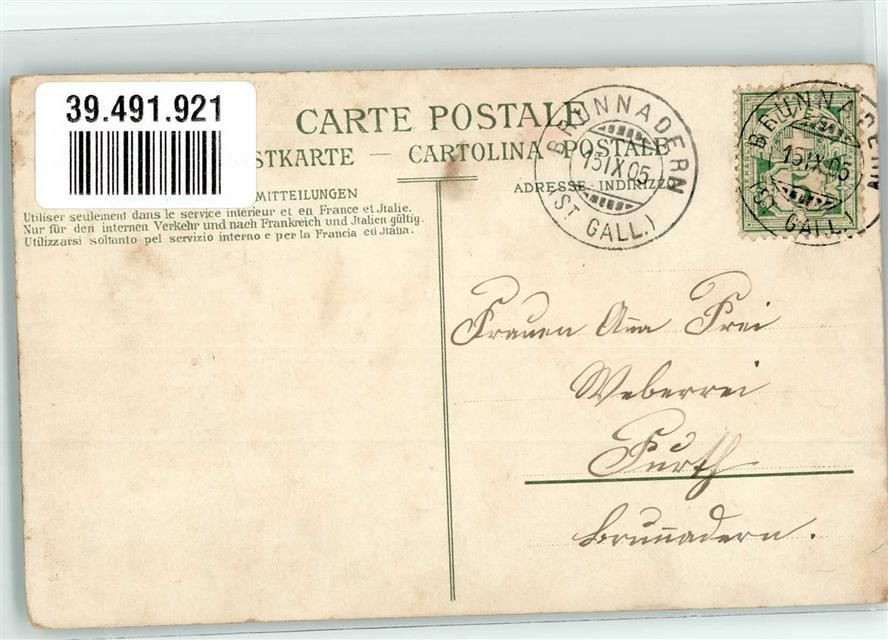 39.491.921
CARTE POSTALE
STKARTE — CARTOLINA POSTALE
MITTEILUNGEN
ADRESSE - INDIRIZZO
Utiliser seulement dans le service intérieur et en France et Jtalie.
Nur für den internen Verkehr und nach Frankreich und Jtalien gültig.
Utilizzarsi soltanto pel servizio interno e per la Francia ed Jtalia.
BRUNNADERN
15 IX 05
(ST GALL.)
BRUNNADERN
15 IX 05
(ST GALL.)
Frauen Anna Frei
Weberrei
Furth
Brunnadern.